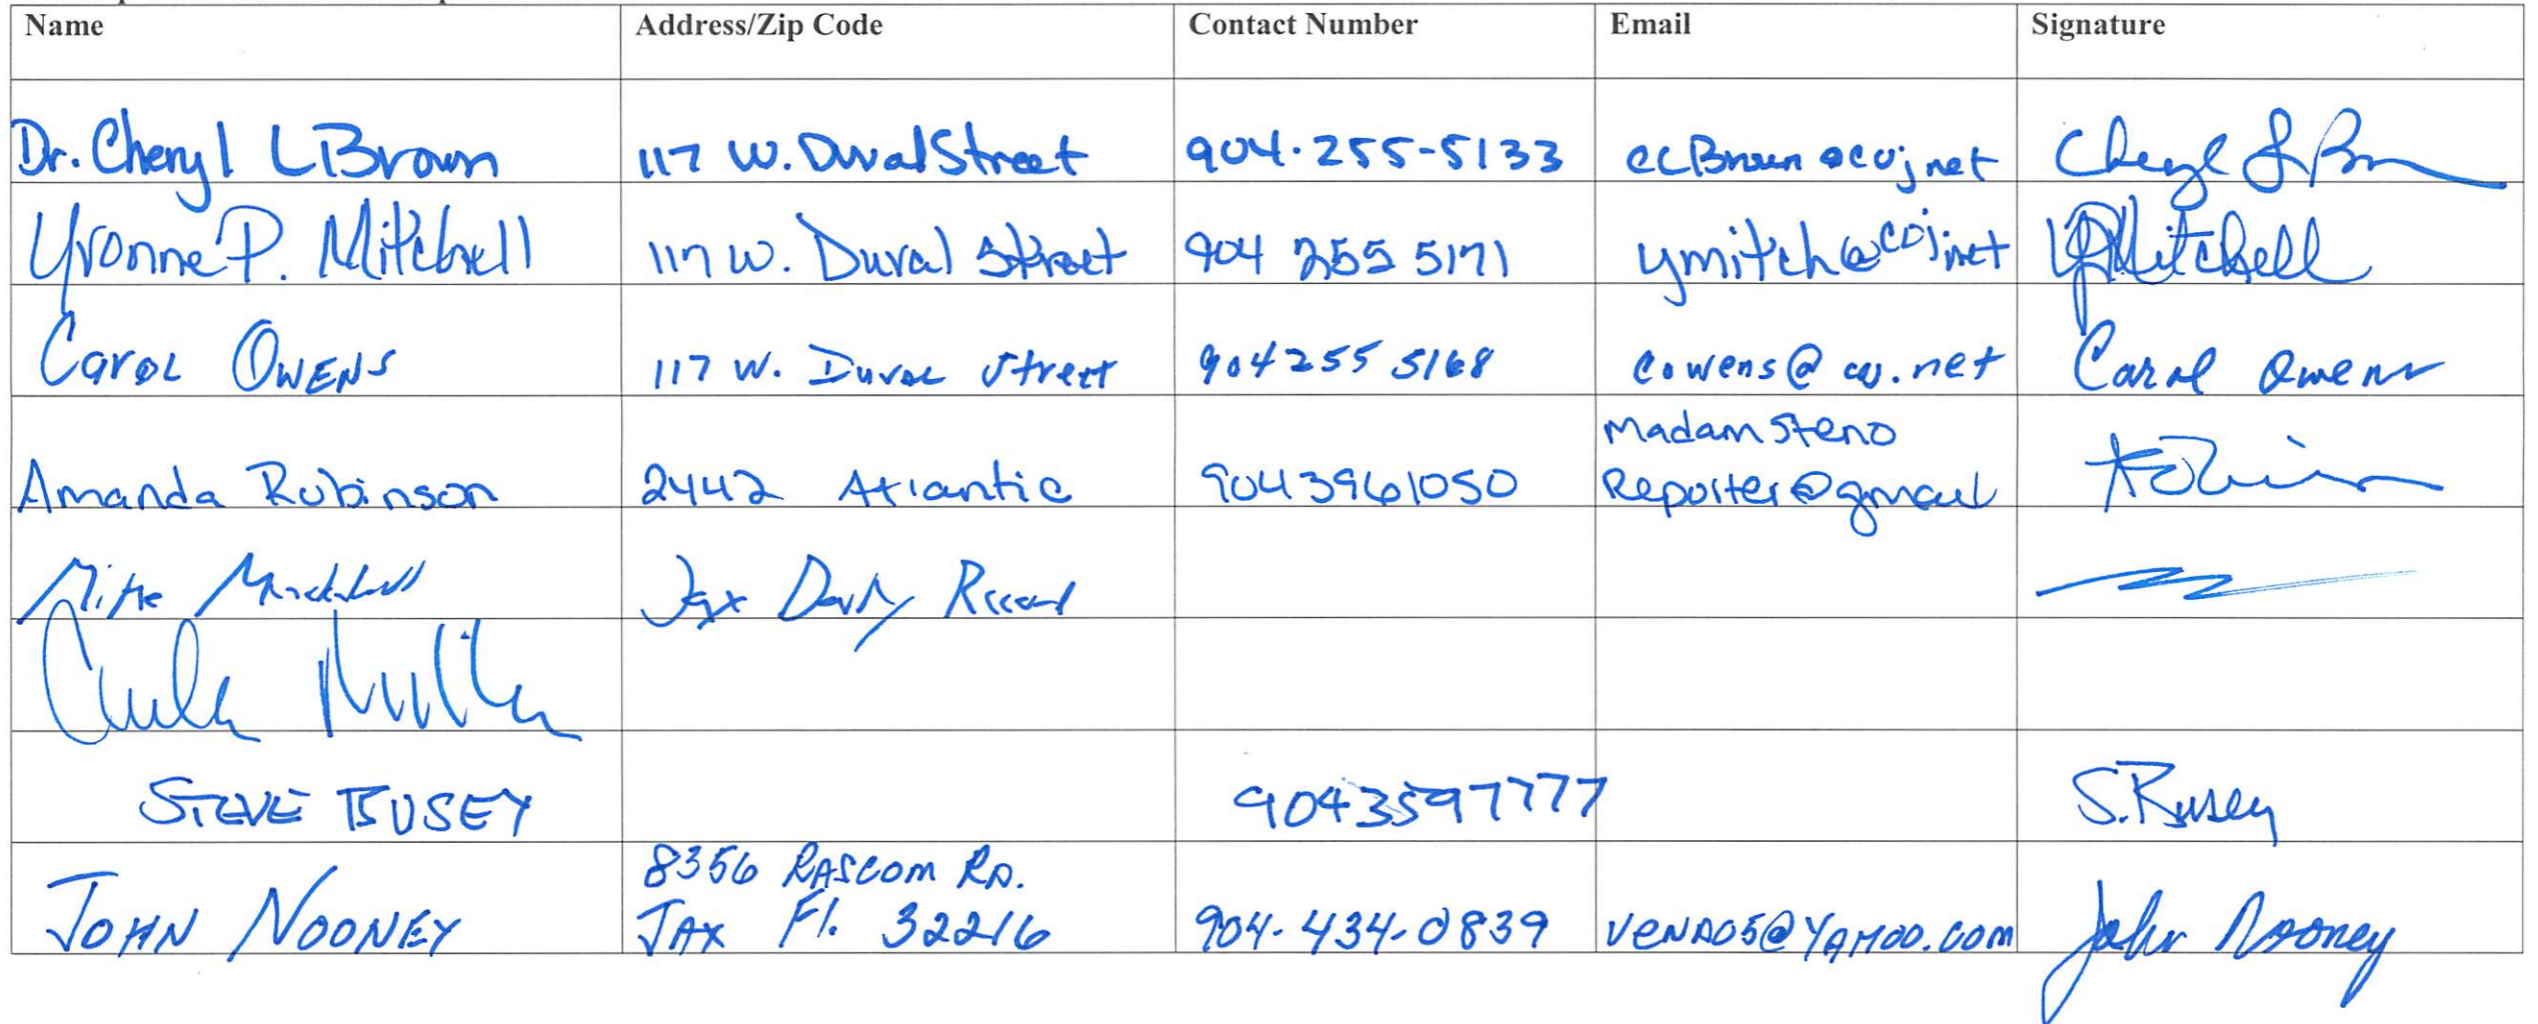 Name Address/Zip Code Contact Number Email Signature
Dr. Cheryl L Brown 117 W. Duval Street 904.255-5133 CLBrown@coj.net Cheryl L Brown
Yvonne P. Mitchell 117 W. Duval Street 904 255 5171 ymitch@coj.net YPMitchell
Carol Owens 117 W. Duval Street 904 255 5168 cowens@coj.net Carol Owens
Madam Steno
Amanda Robinson 2442 Atlantic 9043961050 Reporter@gmail
Mike Jax Daily Record
STEVE BUSEY 9043597777 S. Busey
8356 RASCOM RD.
JOHN NOONEY JAX Fl. 32216 904-434-0839 VENA05@YAHOO.COM John Nooney